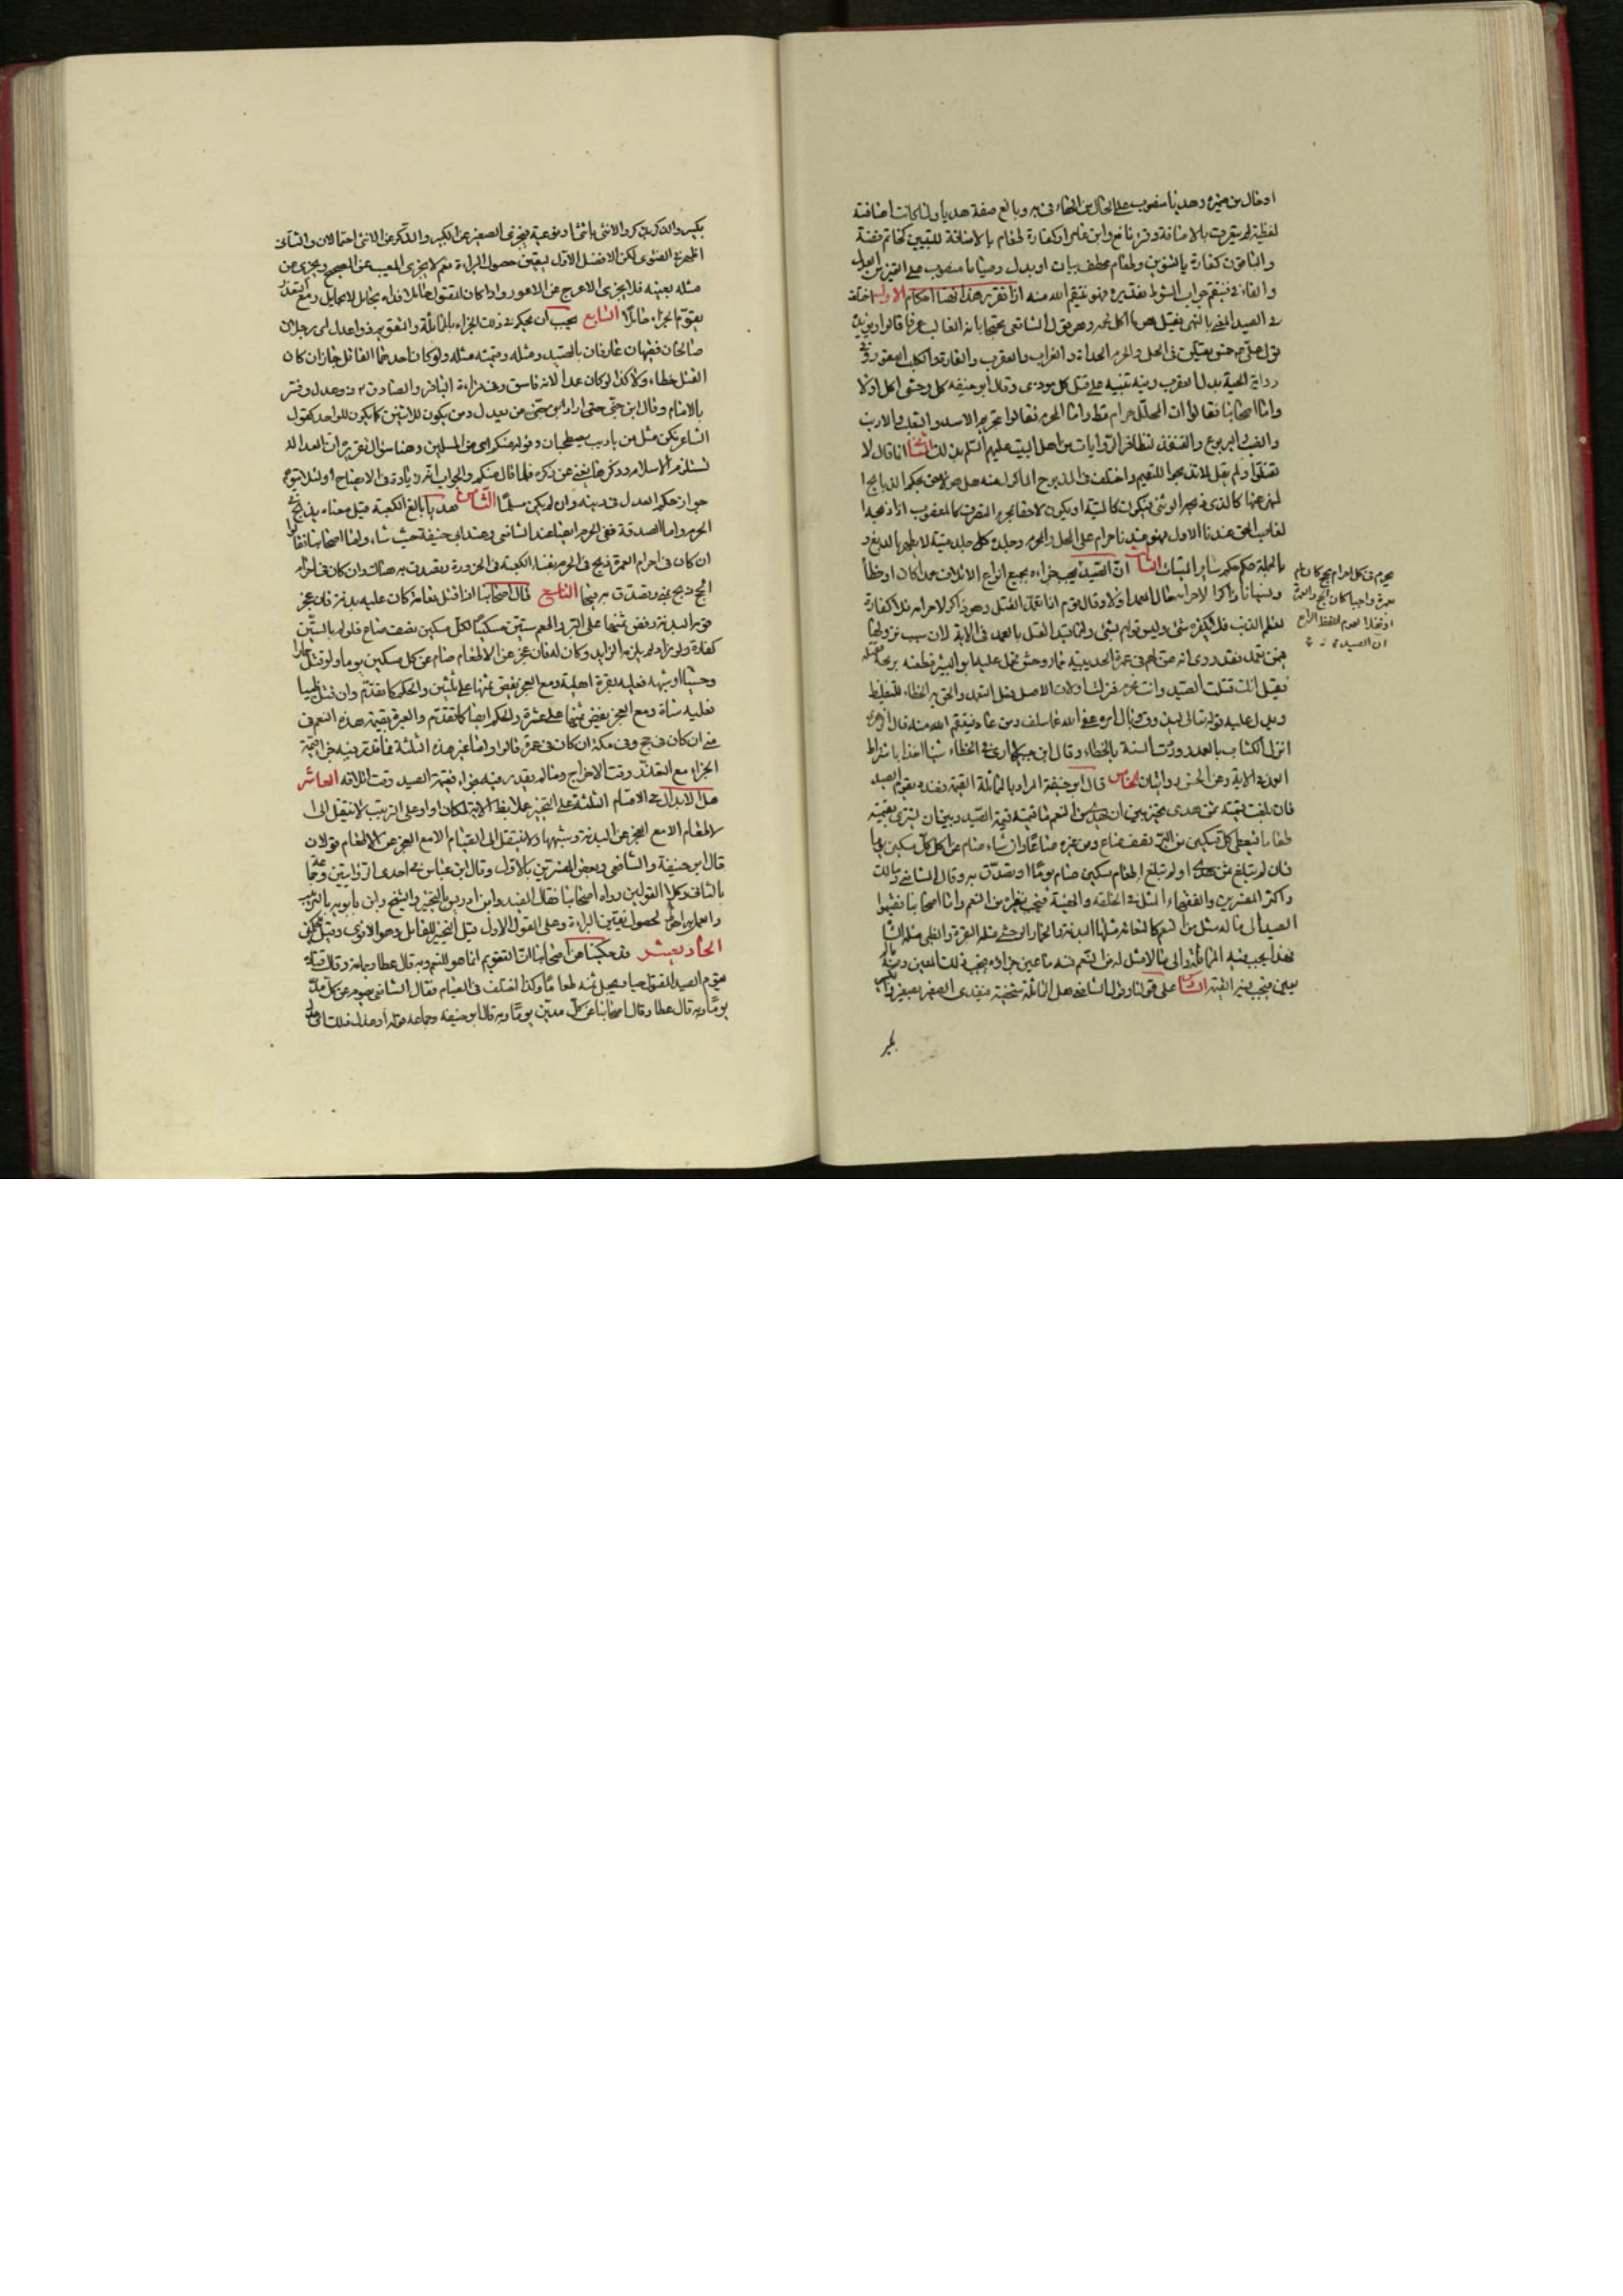 او حال من ضميره وهديا منصوب على الحال من الهاء في به وبالغ صفة هديا ولما كانت اضافته
لفظية لم يتعرف بالاضافة وقرء نافع وابن عامر او كفارة طعام بالاضافة للتبيين كخاتم فضة
والباقون كفارة بالتنوين وطعام عطف بيان او بدل وصياما منصوب على التميز من العدل
والفاء في فينتقم جواب الشرط تقديره فهو ينتقم الله منه اذا تقرر هذا فهنا احكام الاول اختلف
في الصيد المنهي بقتل هو ما اكل لحمه وهو قول الشافعي محتجا بانه الغالب عرفا قالوا ويؤيده
قوله خمس يقتلن في الحل والحرم الحداة والغراب والعقرب والفارة والكلب العقور وفي
رواية الحية بدل العقرب وفيه تنبيه على قتل كل موذي وقال ابو حنيفه كل وحش اكل اولا
واما اصحابنا فقالوا ان المحلل حرام قطعا واما المحرم فقالوا بتحريم الاسد والثعلب والارنب
والضب واليربوع والقنفذ لتظافر الروايات من اهل البيت عليهم السلم بذلك انما قال لا
تقتلوا ولم يقل لا تذبحوا للتعميم واختلف في المذبوح الماكول منه هل هو لاحق بحكم الذبايح
المنهي عنها كالذي ذبحه الوثني فيكون كالميتة او يكون لاحقا بمحرم التصرف كالمغصوب اذا ذبحه
الغاصب الحق عندنا الاول فهو ميتة حرام على المحل والمحرم وجلده كلي جلد ميتة لا يطهر بالدبغ و
بالجملة حكمه حكم ساير الميتات الثالث ان الصيد يجب جزاءه بجميع انواع الاتلاف عمدا كان او خطأ
ونسيانا ذاكرا لاحرامه حال العمد اولا وقال قوم اذا تعمد القتل وهو ذاكر لاحرامه فلا كفارة
لعظم الذنب فلا تكفره شئ وليس قولهم بشئ وانما قيد القتل بالعمد في الاية لان سبب نزولها
فيمن تعمد فقد روي انه عن لهم في عمرة الحديبية حمار وحش فحمل عليه ابو اليسر فطعنه برمحه فقتله
فقيل انك قتلت الصيد وانت محرم فنزلت ولان الاصل فعل التعمد والحق به الخطاء للتغليظ
ويدل عليه قوله تعالى ليذوق وبال امره عفا الله عما سلف ومن عاد فينتقم الله منه قال الزهري
انزل الكتاب بالعمد ووردت السنة بالخطاء وقال ابن جبير لا ارى في الخطاء شيئا اخذا باشتراط
العمد في الاية وعن الحسن روايتان الخامس قال ابو حنيفة المراد بالمماثلة القيمة فعنده يقوم الصيد
فان بلغت قيمته ثمن هدي تخير بين ان يهدي من النعم ما قيمته قيمة الصيد وبين ان يشتري بقيمته
طعاما فيعطي كل مسكين من البر نصف صاع ومن غيره صاعا وان شاء صام عن كل مسكين يوما
فان لم تبلغ ثمن هدي اولم تبلغ اطعام مسكين صام يوما او تصدق به وقال الشافعي ومالك
واكثر المفسرين والفقهاء المثل في الخلقة والهيئة فيجب نظيره من النعم واما اصحابنا فقسموا
الصيد الى ما له مثل من النعم كالنعامة مثلها البدنة والحمار الوحشي مثله البقرة والظبي مثله الشاة
فهذا يجب فيه المماثلة والى ما لا مثل له من النعم فيه ما عين جزاؤه فيجب ذلك المعين ومنه ما لم
يعين فيجب فيه القيمة السادس على قولنا وقول الشافعي هل المماثلة شخصية فيفدي الصغير بصغير والكبير
بكبير
يحرم في كل احرام بحج كان ام
بعمرة واجبا كان الحج والعمرة
او نفلا لعموم اللفظ الرابع
ان الصيد
بكبير والذكر بذكر والانثى بانثى او نوعية فيجزي الصغير عن الكبير والذكر عن الانثى احتمالان والثاني
اظهر في الفتوى لكن الافضل الاول ليتقين حصول البراءة نعم لا يجزي المعيب عن الصحيح ويجزي عن
مثله بعينه فلا يجزي الاعرج عن الاعور واذا كان المقتول حاملا فداه بحامل لا بحايل ومع التعذر
يقوم الجزاء حاملا السابع يجب ان يحكم في ذلك الجزاء بالمماثلة والتقويم ذوا عدل اى رجلان
صالحان فقيهان عارفان بالصيد ومثله وقيمته مثله ولو كان احدهما القاتل جاز ان كان
القتل خطاء ولا كذا لو كان عمدا لانه فاسق وفي قراءة الباقر والصادق ع ذو عدل وفسر
بالامام وقال ابن جني حتى اراد ابن جني من يعدل ومن يكون للاثنين كما يكون للواحد كقول
الشاعر نكن مثل من ياذيب يصطحبان وقوله منكم اى من المسلمين وهنا سؤال تقريره ان العدالة
تستلزم الاسلام وذكرها يغني عن ذكره فلما قال منكم والجواب انه زيادة في الايضاح اولئلا يتوهم
جواز حكم العدل في دينه وان لم يكن مسلما الثامن هديا بالغ الكعبة قيل معناه يذبح في
الحرم واما الصدقة ففي الحرم ايضا عند الشافعي وعند ابي حنيفة حيث شاء واما اصحابنا فقالوا
ان كان في احرام العمرة ذبح في الحرم بفناء الكعبة في الحزورة ويتصدق به هناك وان كان في احرام
الحج ذبح بمنى وتصدق به فيها التاسع قال اصحابنا اذا قتل نعامة كان عليه بدنة فان عجز
قوم البدنة وفض ثمنها على البر واطعم ستين مسكينا لكل مسكين نصف صاع فلو لم يف بالستين
كفاه ولو زاد لم يلزمه الزايد وكان له فان عجز عن الاطعام صام عن كل مسكين يوما ولو قتل حمارا
وحشيا او شبهه فعليه بقرة اهلية ومع العجز يفض ثمنها على ثلثين والحكم كما تقدم وان قتل ظبيا
فعليه شاة ومع العجز يفض ثمنها على عشرة والحكم ايضا كما تقدم والعبرة بقيمة هذه النعم في
منى ان كان في حج وفي مكة ان كان في عمرة قالوا واما غير هذه الثلثة فما قدر فيه جزاء قيمة
الجزاء مع التعذر وقت الاخراج وما لم يقدر فيه جزاء فقيمة الصيد وقت اتلافه العاشر
هل الابدال في الاقسام الثلثة على التخيير عملا بلفظ الاية لمكان او او على الترتيب لا ينتقل الى
الاطعام الا مع العجز عن البدنة وشبهها ولا ينتقل الى الصيام الا مع العجز عن الاطعام قولان
قال ابو حنيفة والشافعي وبعض المفسرين بالاول وقال ابن عباس في احدى الروايتين وجماعة
بالثاني وكلا القولين رواه اصحابنا فقال المفيد وابن ادريس بالتخيير والشيخ وابن بابويه بالترتيب
والعمل به احوط لحصول يقين البراءة وعلى القول الاول قيل التخيير للقاتل وهو الاقوى وقيل للحكمين
الحاديعشر قد حكينا عن اصحابنا ان التقويم انما هو للنعم وبه قال عطا وجماعة وقال قتادة
يقوم الصيد المقتول حيا فيجعل ثمنه طعاما وكذا اختلف في الصيام فقال الشافعي يصوم عن كل مد
يوما وبه قال عطا وقال اصحابنا عن كل مدين يوما وبه قال ابو حنيفه وجماعة قوله او عدل ذلك